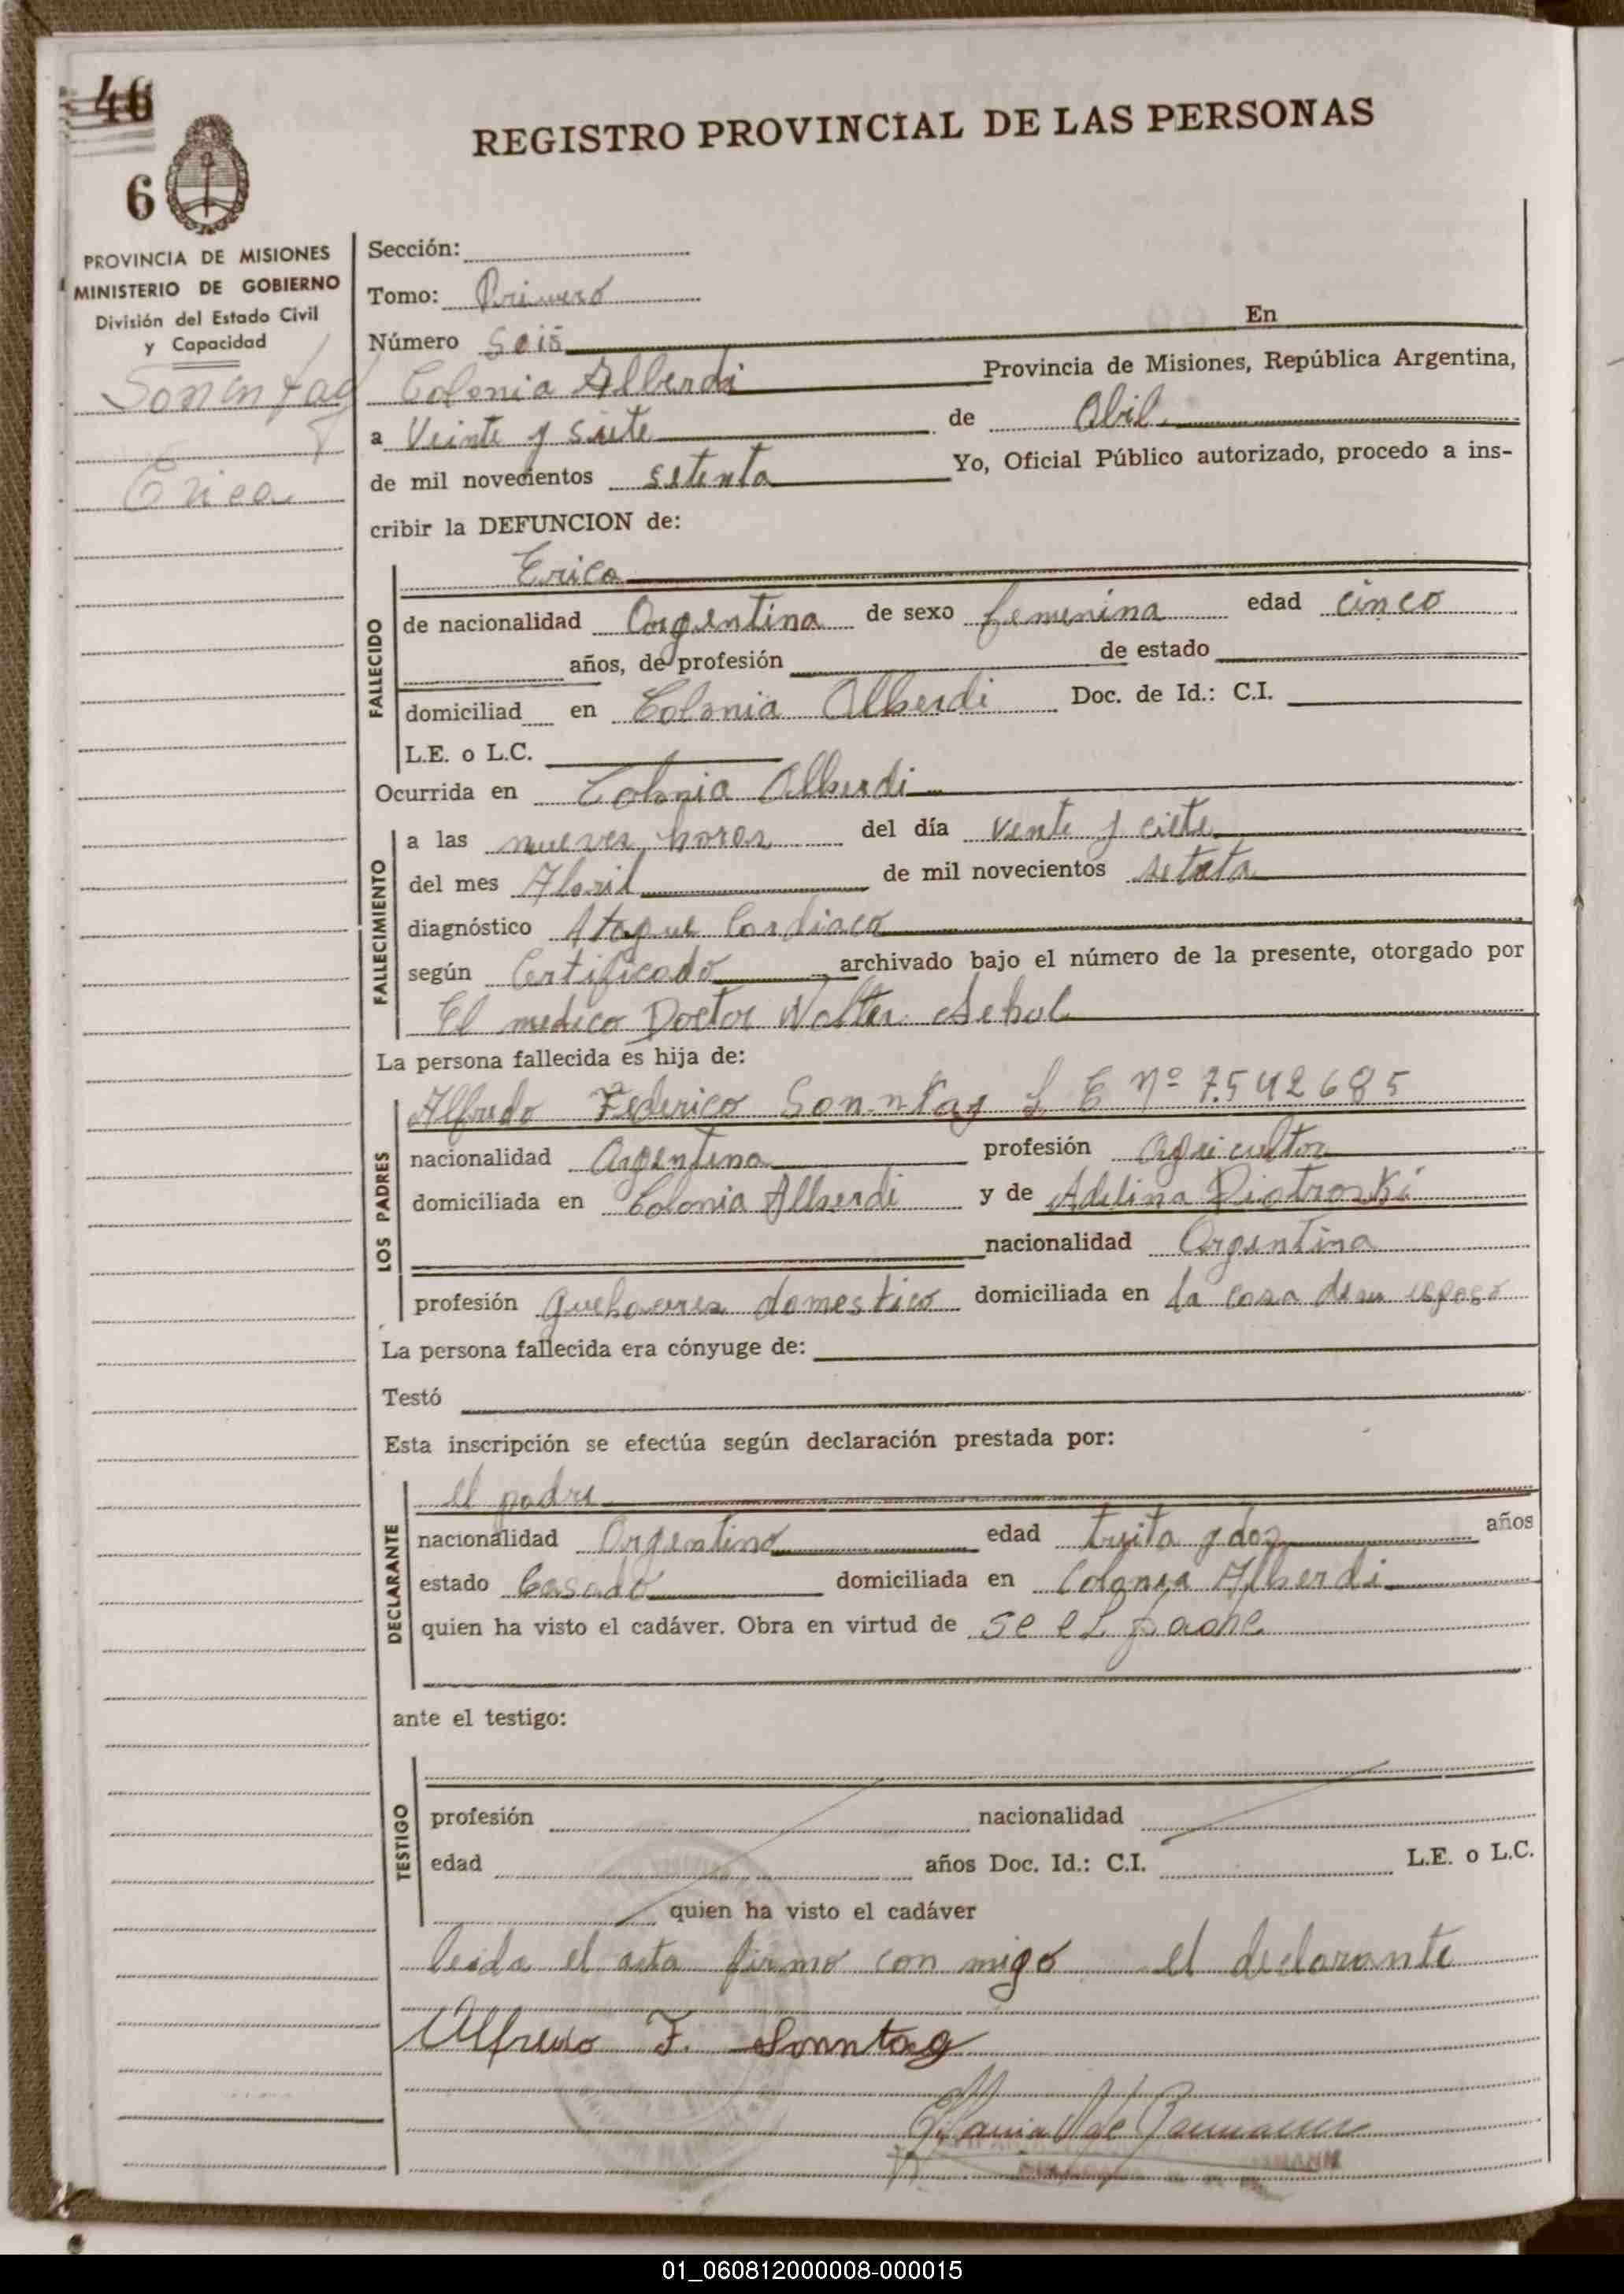 46
6
REGISTRO PROVINCIAL DE LAS PERSONAS
PROVINCIA DE MISIONES
MINISTERIO DE GOBIERNO
División del Estado Civil
y Capacidad
Sonnntag
Erica
Sección:
Tomo: Primero
Número Seis En
Colonia Alberdi Provincia de Misiones, República Argentina,
a Veinte y siete de Abil
de mil novecientos setenta Yo, Oficial Público autorizado, procedo a ins-
cribir la DEFUNCION de:
FALLECIDO
Erica
de nacionalidad Argentina de sexo femenina edad cinco
años, de profesión de estado
domiciliad en Colonia Alberdi Doc. de Id.: C.I.
L.E. o L.C.
Ocurrida en Colonia Alberdi
FALLECIMIENTO
a las nueves horas del día vente y ciete
del mes Abril de mil novecientos
diagnóstico Ataque Cardiaco
según Certificado archivado bajo el número de la presente, otorgado por
El medico Doctor Walter
La persona fallecida es hija de:
LOS PADRES
Alfredo Federico Sonntag L E Nº 7.542685
nacionalidad Argentina profesión Agricultor
domiciliada en Colonia Alberdi y de Adelina Piotroski
nacionalidad Argentina
profesión domestico domiciliada en la casa de su esposo
La persona fallecida era cónyuge de:
Testó
Esta inscripción se efectúa según declaración prestada por:
DECLARANTE
el padre
nacionalidad Argentino edad treita y dos años
estado Casado domiciliada en Colonia Alberdi
quien ha visto el cadáver. Obra en virtud de se el padre
ante el testigo:
TESTIGO
profesión nacionalidad
edad años Doc. Id.: C.I. L.E. o L.C.
quien ha visto el cadáver
leida el acta firmo con migo el declarante
Alfredo F. Sonntag
01_060812000008-000015